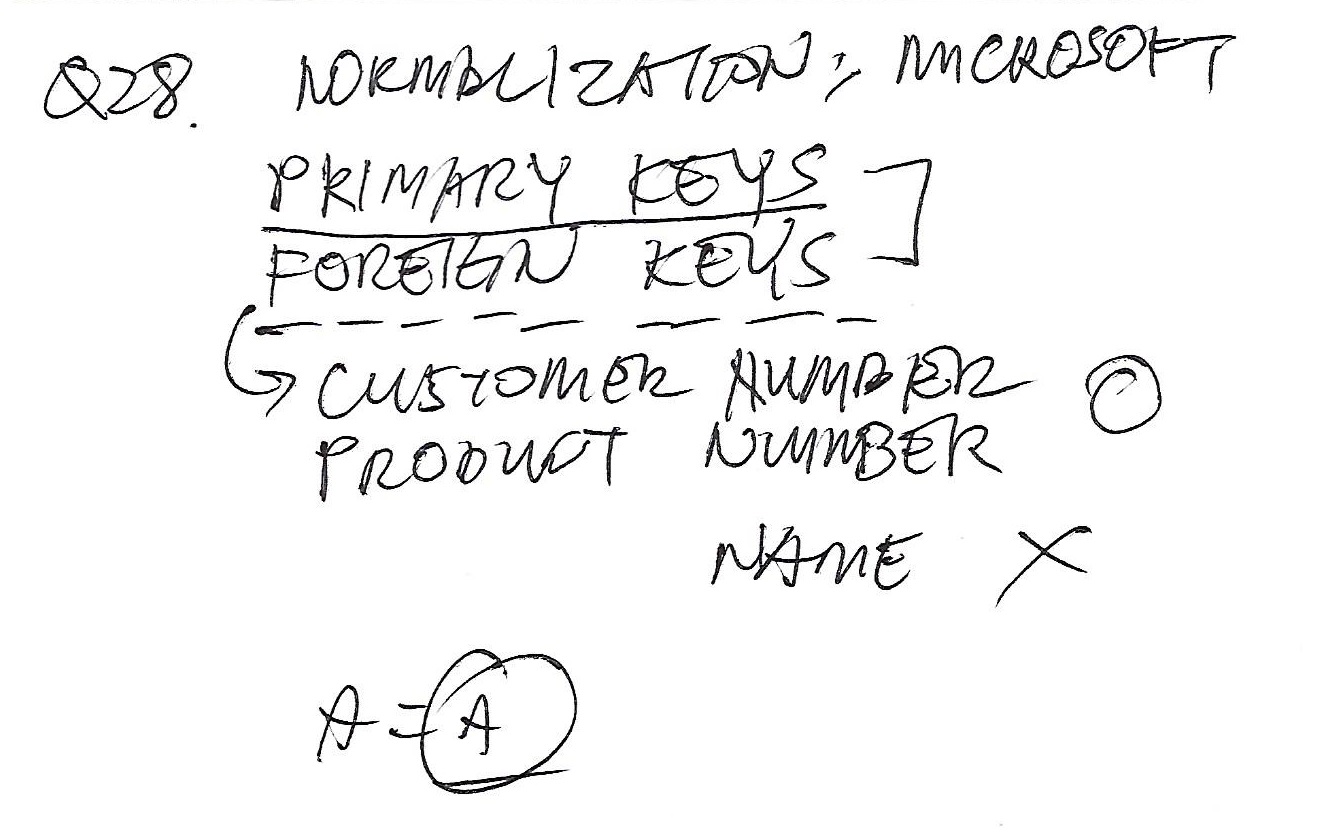 Q28. NORMALIZATION; MICROSOFT
PRIMARY KEYS ]
FOREIGN KEYS
CUSTOMER NUMBER O
PRODUCT NUMBER
NAME X
A = A